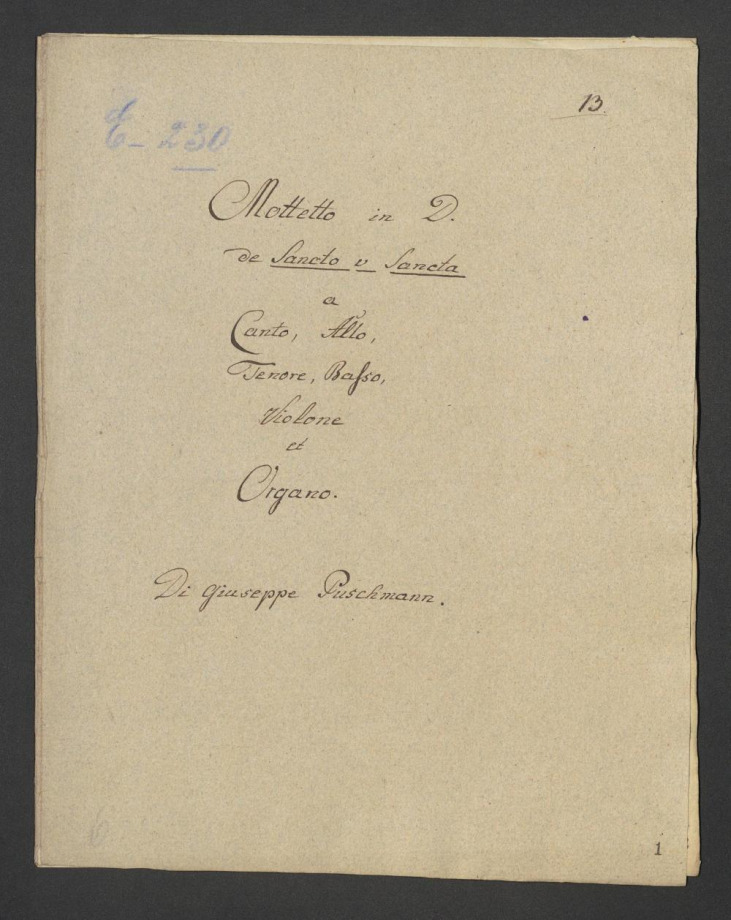 13.
E- 230
Mottetto in D.
de Sancto v Sancta
a
Canto, Alto,
Tenore, Baſso,
Violone
et
Organo.
Di Giuseppe Puschmann.
6
1